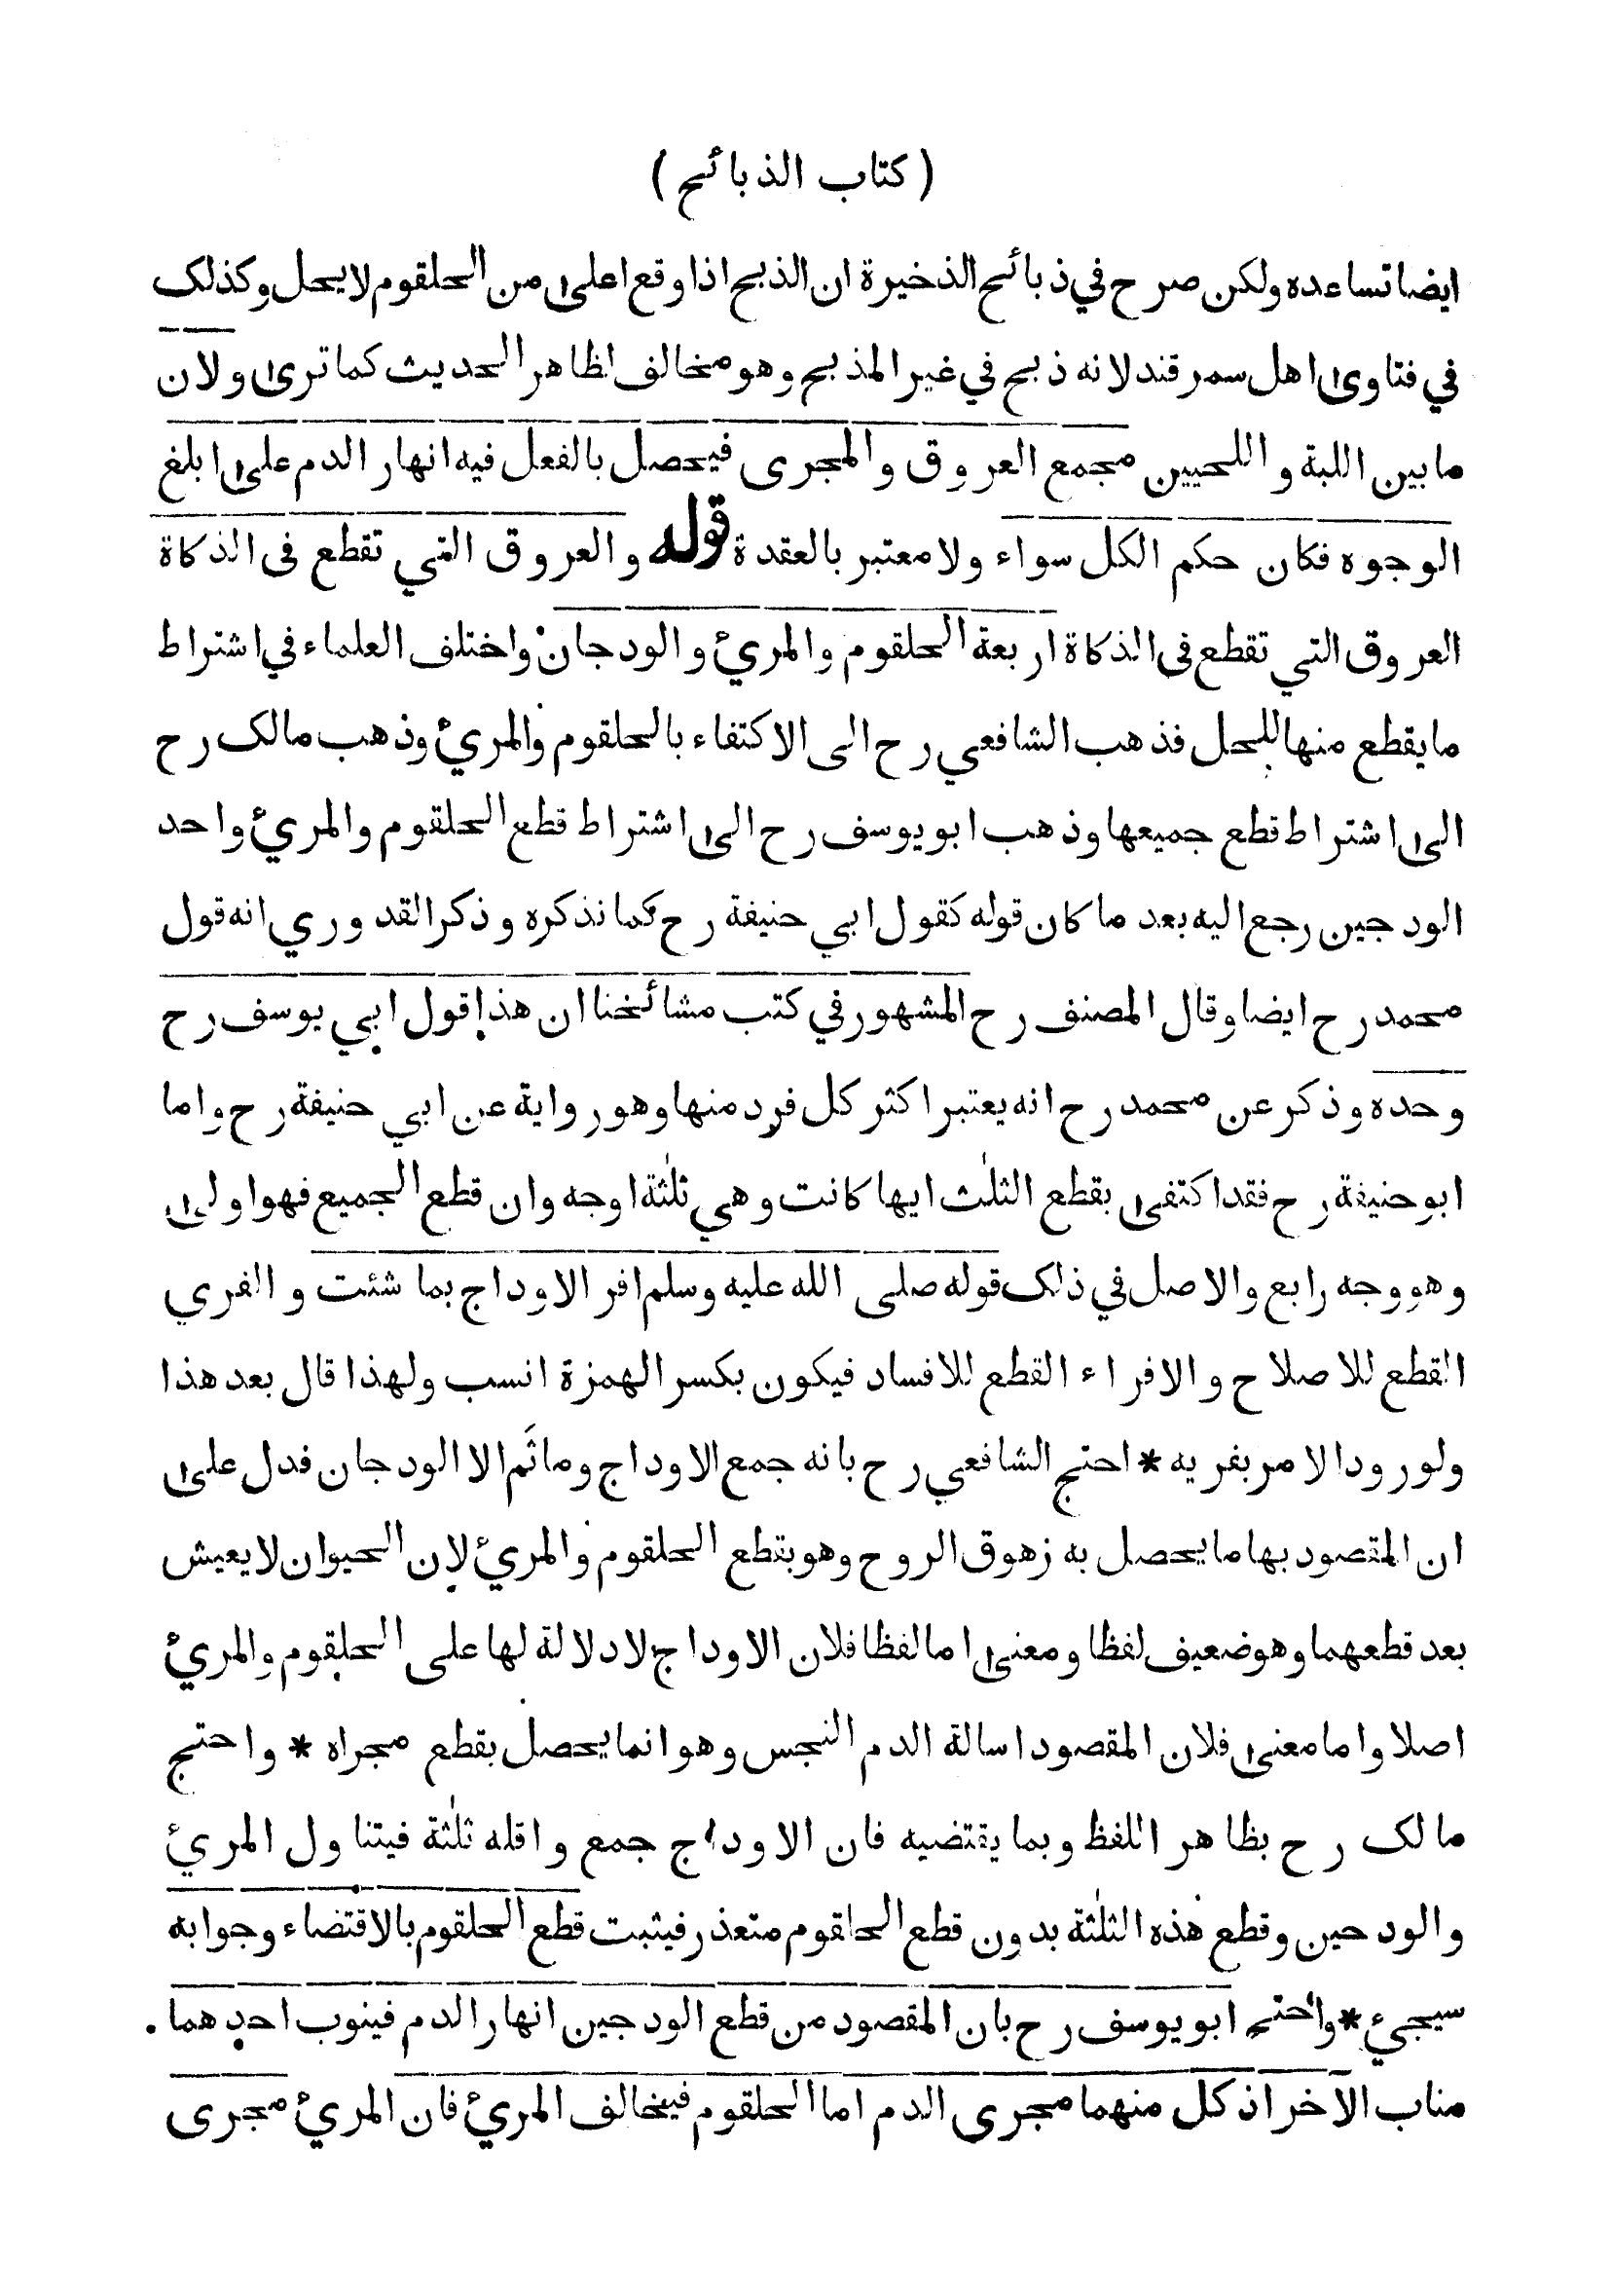 ( كتاب الذبائح )
ايضا تساعده ولكن صرح في ذبائح الذخيرة ان الذبح اذا وقع اعلى من الحلقوم لا يحل وكذلک
في فتاوى اهل سمرقند لانه ذبح في غير المذبح وهو مخالف لظاهر الحديث كما ترى ولان
ما بين اللبة واللحيين مجمع العروق والمجرى فيحصل بالفعل فيه انهار الدم على ابلغ
الوجوه فكان حكم الكل سواء ولا معتبر بالعقدة قوله والعروق التي تقطع فى الذكاة
العروق التي تقطع فى الذكاة اربعة الحلقوم والمرئ والودجان واختلف العلماء في اشتراط
ما يقطع منها للحل فذهب الشافعي رح الى الاكتفاء بالحلقوم والمرئ وذهب مالک رح
الى اشتراط قطع جميعها وذهب ابو يوسف رح الى اشتراط قطع الحلقوم والمرئ واحد
الودجين رجع اليه بعد ما كان قوله كقول ابي حنيفة رح كما نذكره وذكر القدوري انه قول
محمد رح ايضا وقال المصنف رح المشهور في كتب مشائخنا ان هذا قول ابي يوسف رح
وحده وذكر عن محمد رح انه يعتبر اكثر كل فرد منها وهو رواية عن ابي حنيفة رح واما
ابو حنيفة رح فقد اكتفى بقطع الثلٰث ايها كانت وهي ثلٰثة اوجه وان قطع الجميع فهو اولى
وهو وجه رابع والاصل في ذلک قوله صلى الله عليه وسلم افر الاوداج بما شئت والفري
القطع للاصلاح والافراء القطع للافساد فيكون بكسر الهمزة انسب ولهذا قال بعد هذا
ولورود الامر بفريه * احتج الشافعي رح بانه جمع الاوداج وما ثَم الا الودجان فدل على
ان المقصود بها ما يحصل به زهوق الروح وهو بقطع الحلقوم والمرئ لان الحيوان لا يعيش
بعد قطعهما وهو ضعيف لفظا ومعنى اما لفظا فلان الاوداج لا دلالة لها على الحلقوم والمرئ
اصلا واما معنى فلان المقصود اسالة الدم النجس وهو انما يحصل بقطع مجراه * واحتج
مالک رح بظاهر اللفظ وبما يقتضيه فان الاوداج جمع واقله ثلٰثة فيتناول المرئ
والودحين وقطع هذه الثلٰثة بدون قطع الحلقوم متعذر فيثبت قطع الحلقوم بالاقتضاء وجوابه
سيجيء * واحتج ابو يوسف رح بان المقصود من قطع الودجين انهار الدم فينوب احدهما
مناب الآخر اذ كل منهما مجرى الدم اما الحلقوم فيخالف المرئ فان المرئ مجرى